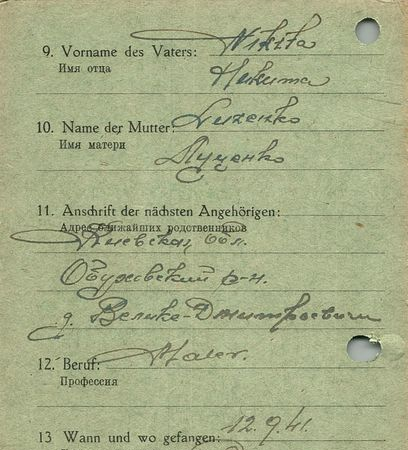 9. Vorname des Vaters: Nikita
Имя отца Никита
10. Name der Mutter: Luzenko
Имя матери
Луценко
11. Anschrift der nächsten Angehörigen:
Адрес ближайших родственников
Киевская обл.
Обуховский р-н.
д. Велике-Дмитровичи
12. Beruf: Maler.
Профессия
13 Wann und wo gefangen: 12.9.41.